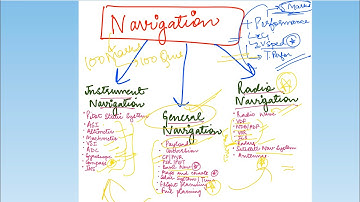 Navigation
5 Marks
+ Performance
CG
2 V Speed
T Perfor
100 Marks
>100 Ques
Instrument
Navigation
• Pitot Static System
• ASI
• Altimeter
• Machmeter
• VSI
• ADC
• Gyroscope
• Compass
• INS
General
Navigation
• Payload
• Conversion
• CP/PNR
• Basic Nav
• Maps and Charts
• Solar System / Time
• Flight planning
• Fuel planning
Radio
Navigation
• Radio Wave
• VDF
• NDB/ADF
• VOR
• ILS
• Radars
• Satellite Nav System
• Antennas